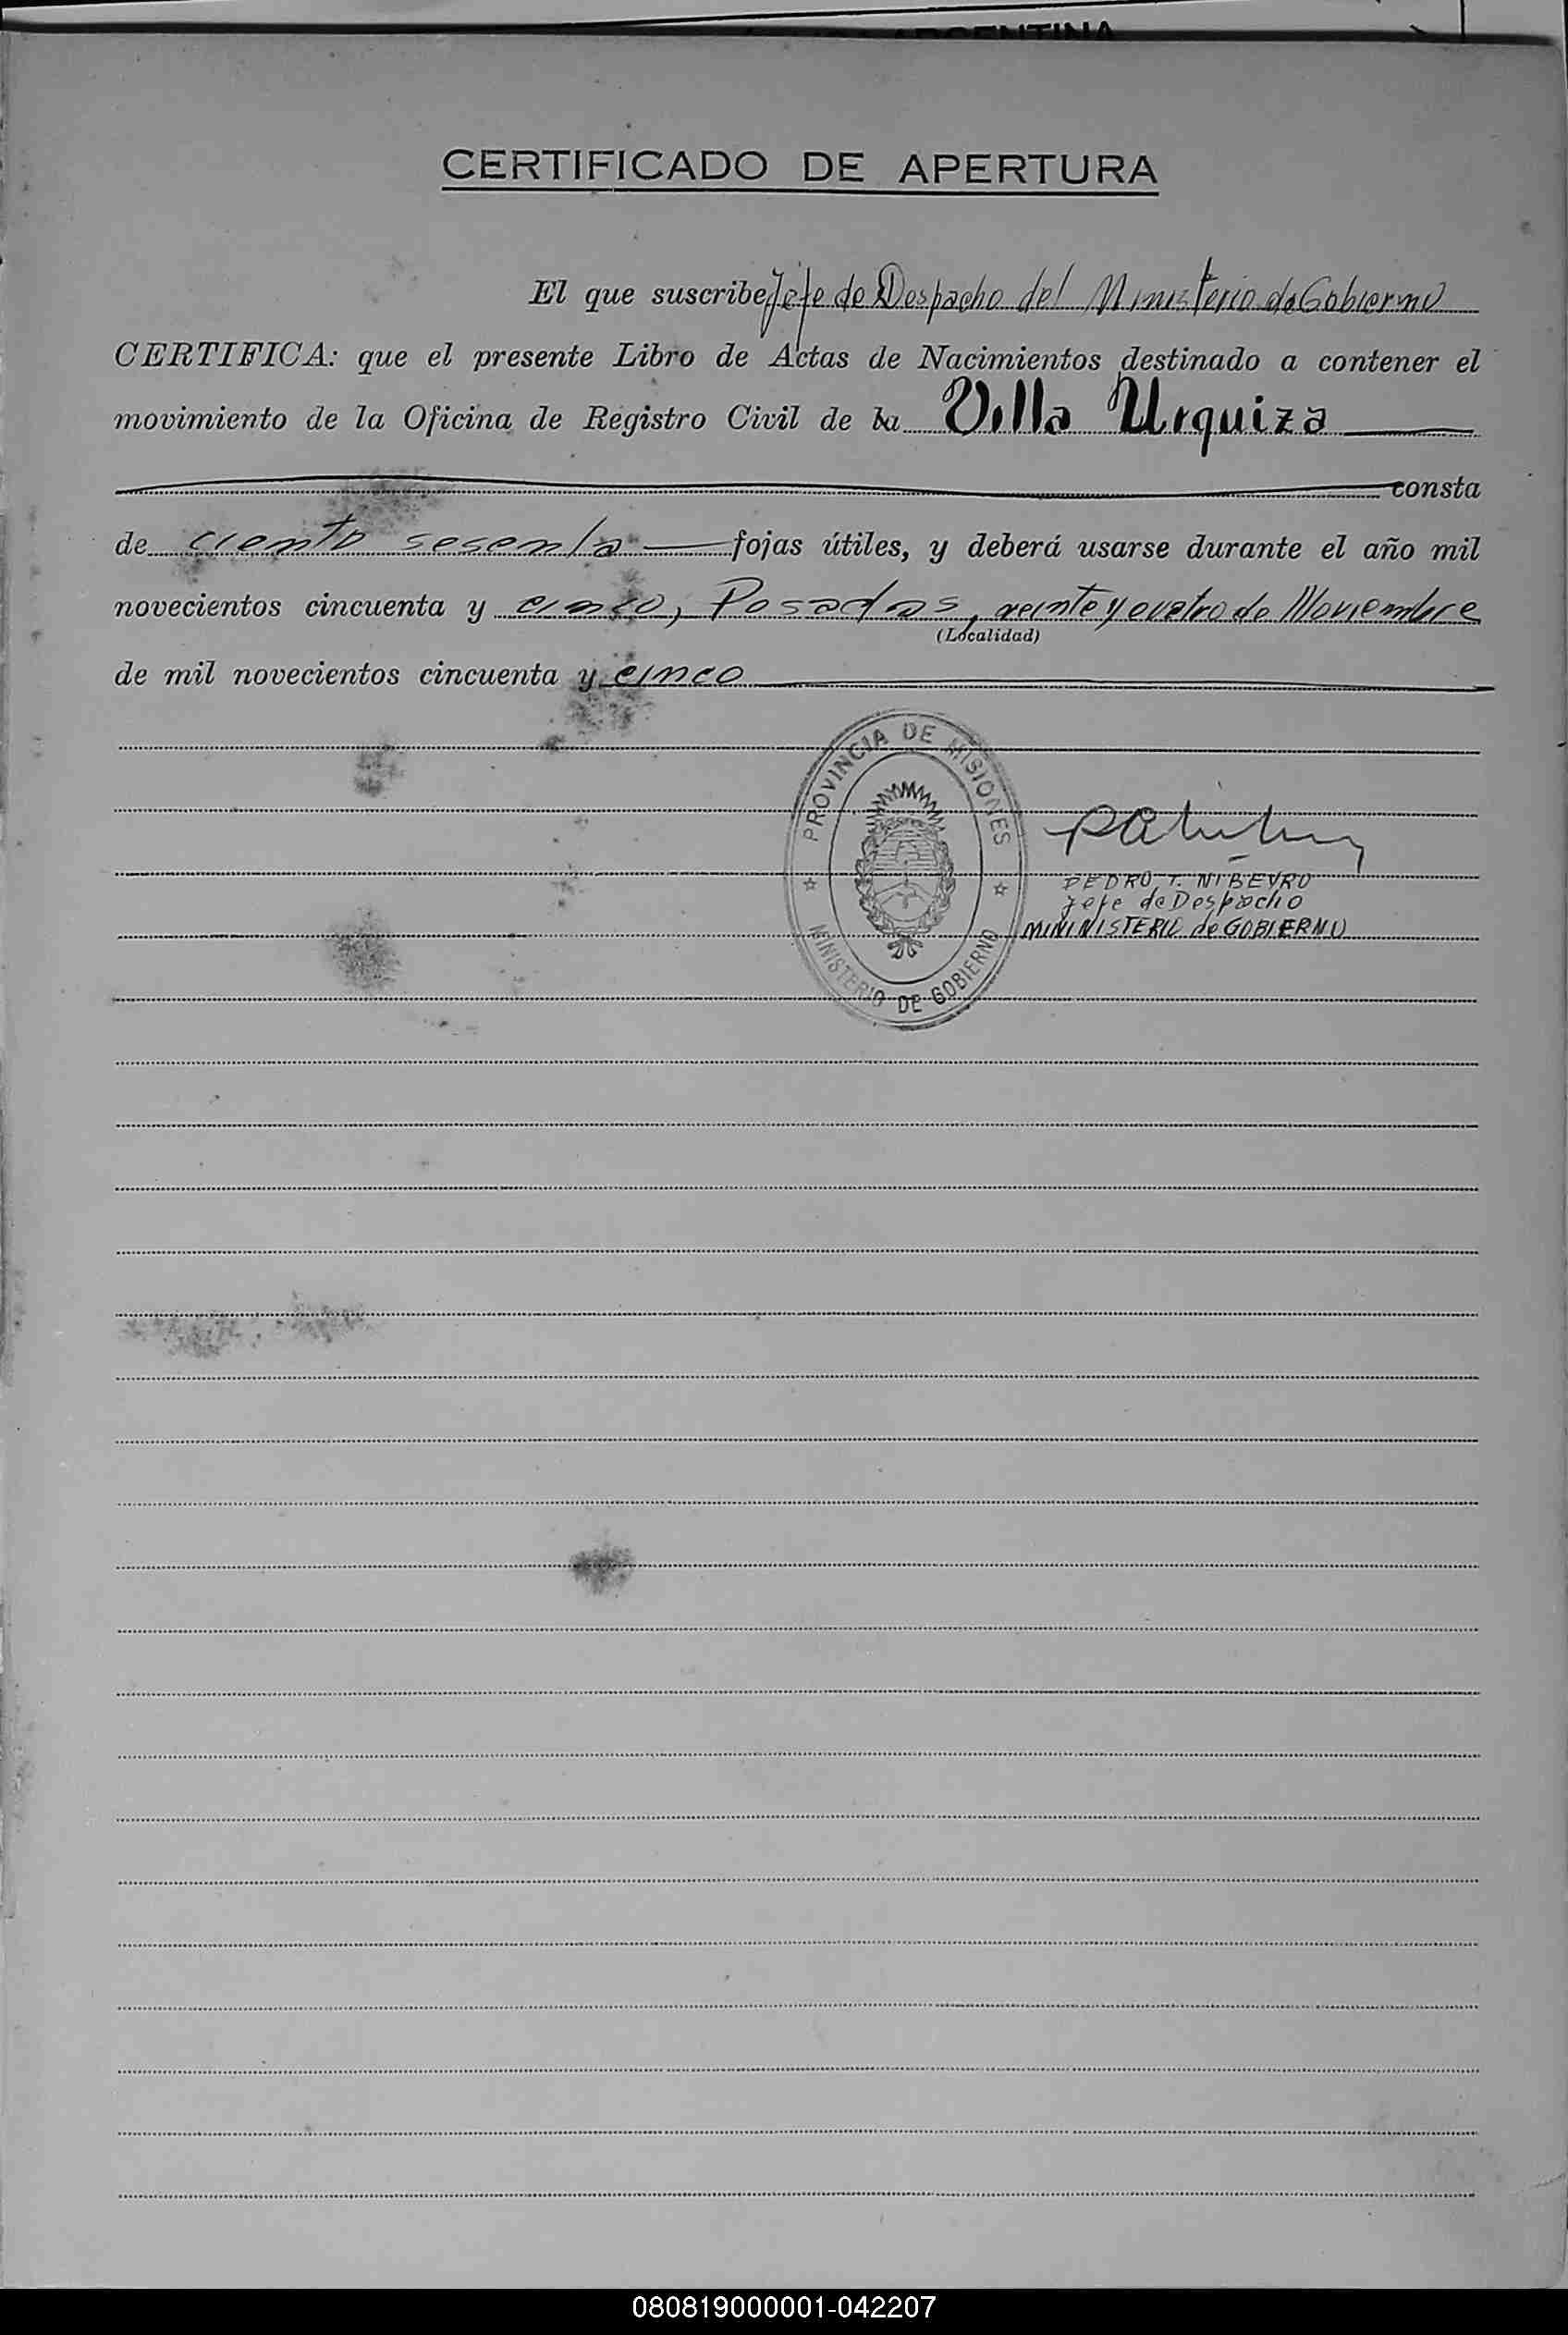 ARGENTINA
CERTIFICADO DE APERTURA
El que suscribe Jefe de Despacho del Ministerio de Gobierno
CERTIFICA: que el presente Libro de Actas de Nacimientos destinado a contener el
movimiento de la Oficina de Registro Civil de la Villa Urquiza
consta
de ciento sesenta fojas útiles, y deberá usarse durante el año mil
novecientos cincuenta y cinco, Posadas, veinte y cuatro de Noviembre
(Localidad)
de mil novecientos cincuenta y cinco
PROVINCIA DE MISIONES
MINISTERIO DE GOBIERNO
PEDRO T.
Jefe de Despacho
MINISTERIO de GOBIERNO
080819000001-042207